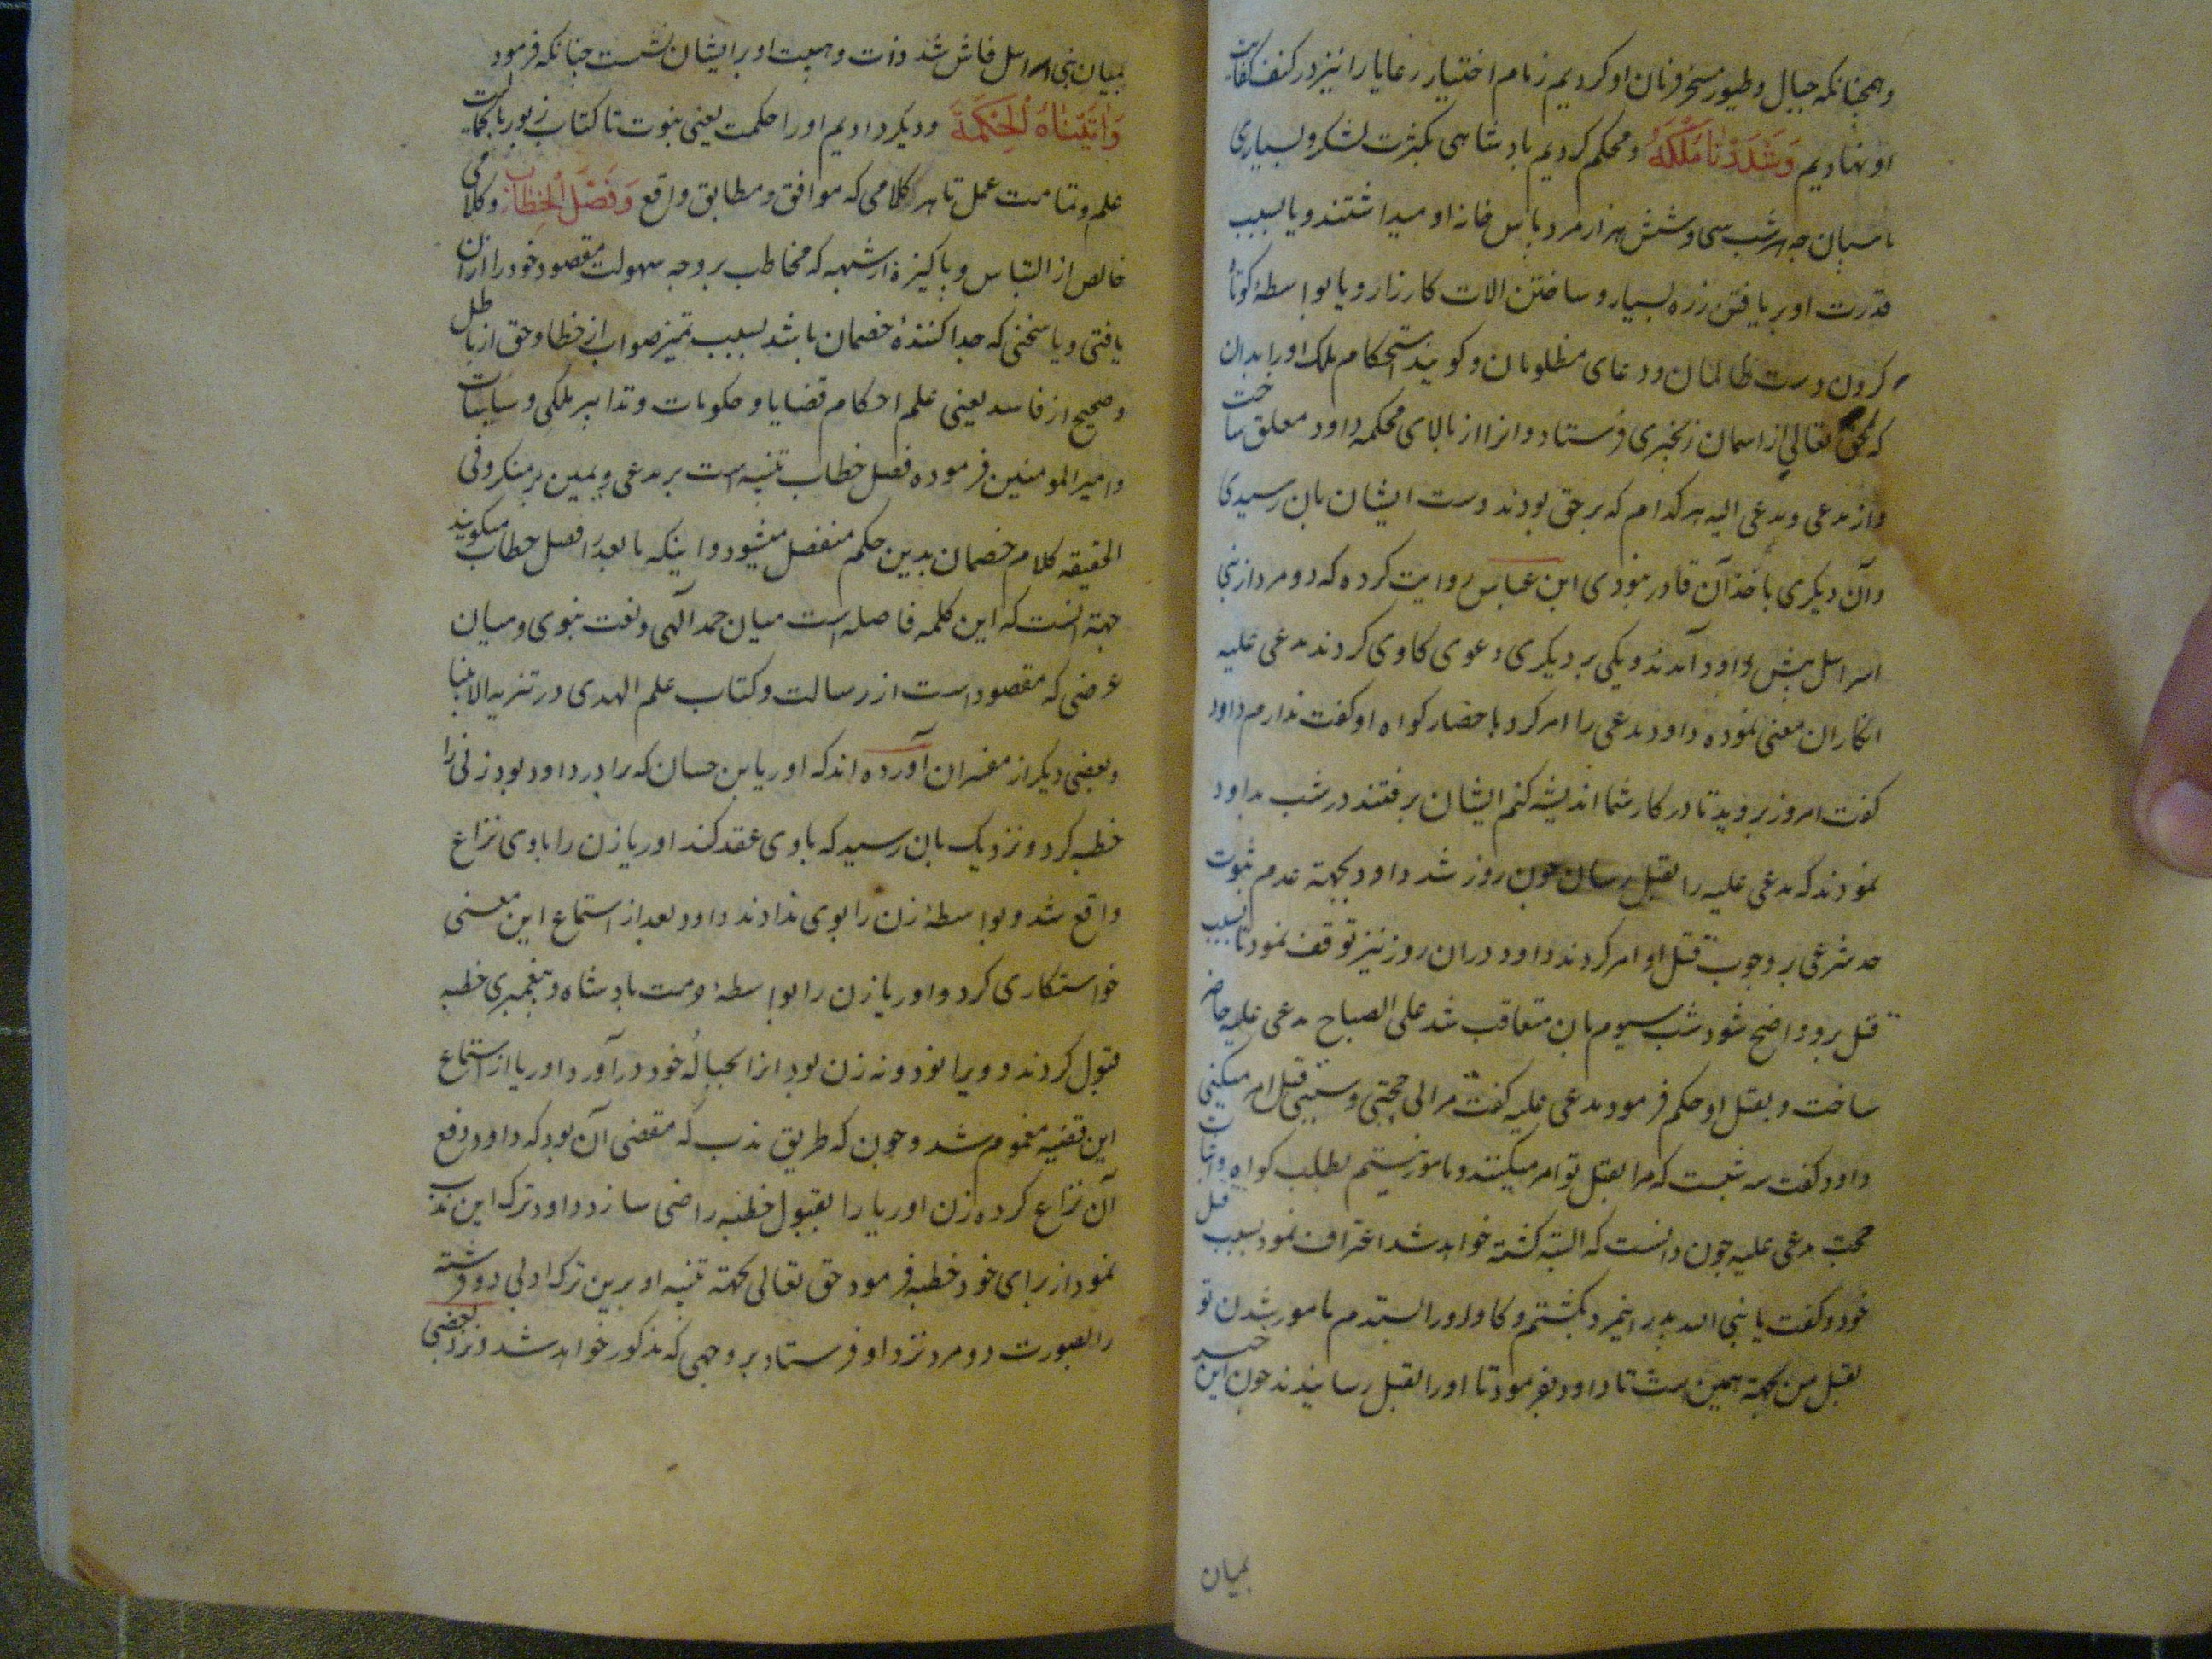 وهمچنانکه جبال و طیور مسخر فرمان او کردیم زمام اختیار رعایا را نیز در کنف کفایت
او نهادیم وَشَدَدْنَا مُلْکَهُ و محکم کردیم پادشاهی بکثرت لشکر و بسیاری
پاسبان چه هر شب سی و شش هزار مرد پاس خانه او میداشتند و یا بسبب
قدرت او بر یافتن زره بسیار و ساختن الات کارزار و یا بواسطهٔ کوتاه
کردن دست ظالمان و دعای مظلومان و کویند استحکام ملک او را بدان
که حق تعالی از اسمان زنجیری فرستاد و انرا از بالای محکمه داود معلق ساخت
و از مدعی و مدعی الیه هر کدام که بر حق بودند دست ایشان بان رسیدی
و آن دیکری باخذ آن قادر نبودی ابن عباس روایت کرده که دو مرد از بنی
اسراسل پیش داود آمدند و یکی بر دیکری دعوی کاوی کردند مدعی علیه
انکار ان معنی نموده داود مدعی را امر کرد باحضار کواه او کفت ندارم داود
کفت امروز بروید تا در کار شما اندیشه کنم ایشان برفتند در شب بداود
نمودند که مدعی علیه را بقتل رسان چون روز شد داود بجهته عدم ثبوت
حد شرعی بر وجوب قتل او امر کردند داود در ان روز نیز توقف نمود تا بسبب
قتل برو واضح شود شب سیوم بان متعاقب شد علی الصباح مدعی علیه حاضر
ساخت و بقتل او حکم فرمود مدعی علیه کفت مرا الی حجتی و سببی قتل امر میکنی
داود کفت سه شبست که مرا بقتل تو امر میکنند و مامور نیستم بطلب کواه و اثبات
حجت مدعی علیه چون دانست که البته کشته خواهد شد اعتراف نمود بسبب قتل
خود و کفت یا نبی الله پدر اینمرد بکشتم و کاو او را بستدم مامور شدن تو
بقتل من بجهته همین است تا داود بفرمود تا او را بقتل رسانیدند چون این خبر
بمیان
بمیان بنی اسراسل فاش شد وذت وهیبت او بر ایشان نشست چنانکه فرمود
وَاٰتَیْنَاهُ الْحِکْمَةَ و دیکر دادیم او را حکمت یعنی نبوت تا کتاب زبور یا کمالیت
علم و تمامت عمل تا هر کلامی که موافق و مطابق واقع وَفَصْلَ الْخِطَابِ و کلامی
خالص از التباس و پاکیزه از شبهه که مخاطب بر وجه سهولت مقصود خود را از ان
یافتی و یا سخنی که جدا کنندهٔ خصمان باشد بسبب تمیز صواب از خطا و حق از باطل
و صحیح از فاسد یعنی علم احکام قضایا و حکومات و تدابیر ملکی و سیاسات
و امیر المومنین فرموده فصل خطاب تنبیه است بر مدعی و یمین بر منکر و فی
الحقیقه کلام خصمان بدین حکم منفصل میشود و اینکه ما بعد را فصل خطاب میکویند
جهته انست که این کلمه فاصله است میان حمد آلهی و نعت نبوی و میان
غرضی که مقصود است از رسالت و کتاب علم الهدی در تنزیه الانبیا
و بعضی دیکر از مفسران آورده اند که اوریا بن حسان که برادر داود بود زنی را
خطبه کرد و نزدیک بان رسید که با وی عقد کند اوریا زن را با وی نزاع
واقع شد و بواسطهٔ زن را بوی ندادند داود بعد از استماع این معنی
خواستکاری کرد و اوریا زن را بواسطهٔ ومت پادشاه و پیغمبری خطبه
قبول کردند و ویرا نود و نه زن بود انرا بحبالهٔ خود در آورد و اوریا از استماع
این قضیه مغموم شد و چون که طریق ندب که مقتضی آن بود که داود دفع
آن نزاع کرده زن اوریا را بقبول خطبه راضی سازد داود ترک این ندب
نمود از برای خود خطبه فرمود حق تعالی بجهته تنبیه او برین ترک اولی دو فرشته
را بصورت دو مرد نزد او فرستاد بر وجهی که مذکور خواهد شد و نزد بعضی